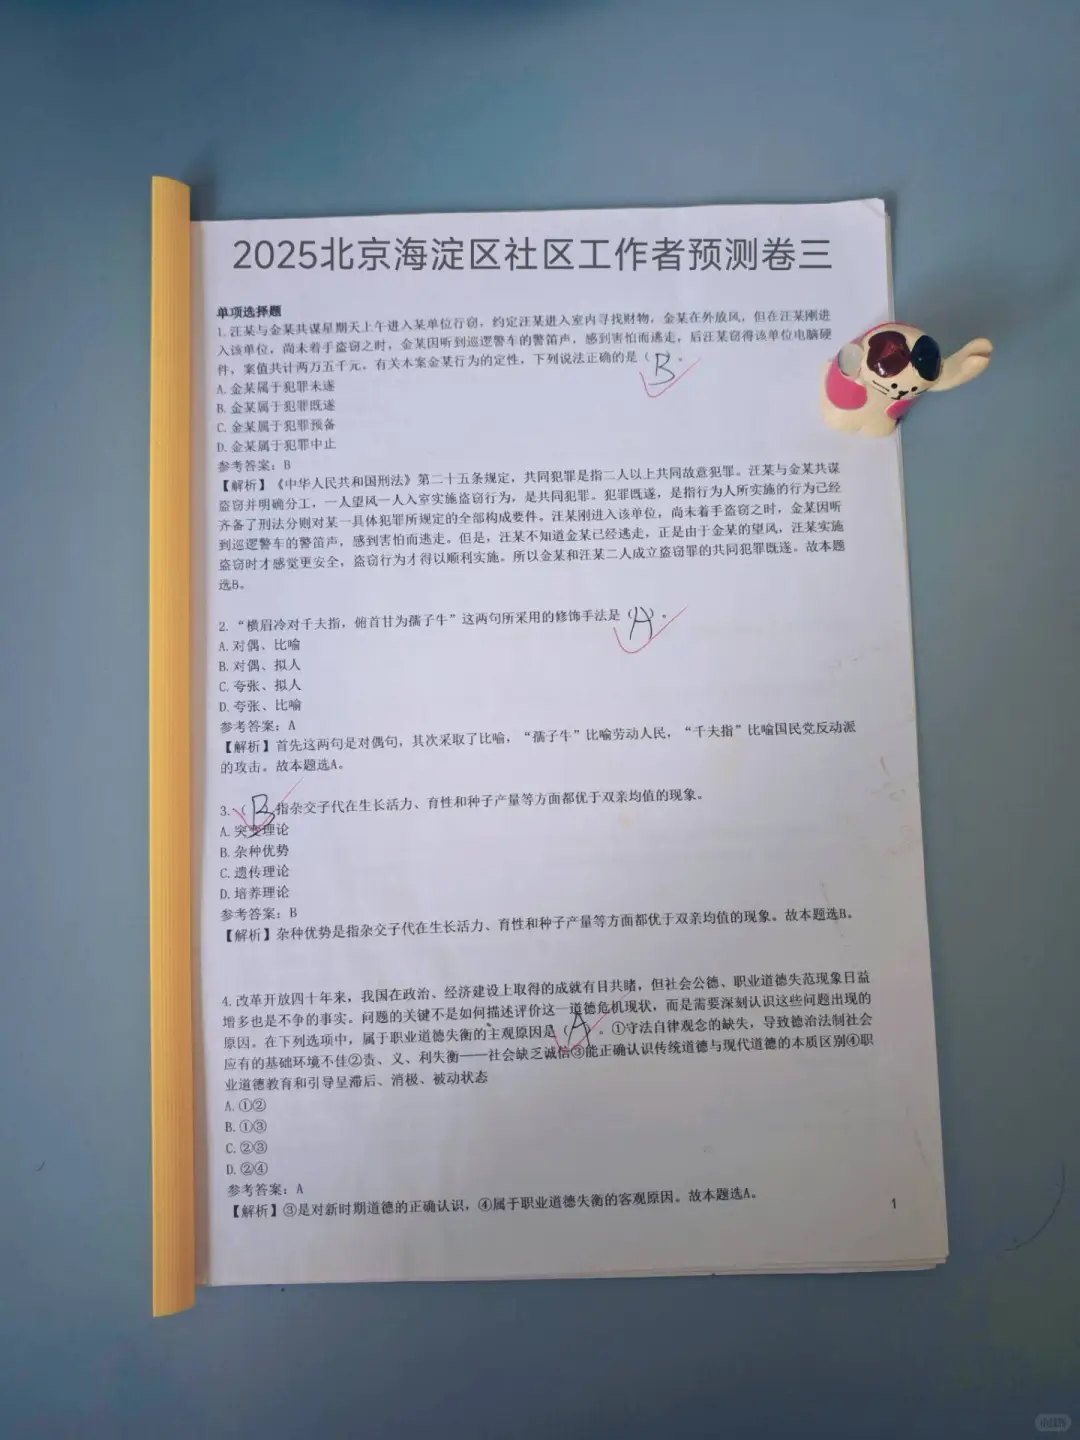 2025北京海淀区社区工作者预测卷三
单项选择题
1. 汪某与金某共谋星期天上午进入某单位行窃，约定汪某进入室内寻找财物，金某在外放风，但在汪某刚进
入该单位，尚未着手盗窃之时，金某因听到巡逻警车的警笛声，感到害怕而逃走，后汪某窃得该单位电脑硬
件，案值共计两万五千元，有关本案金某行为的定性，下列说法正确的是（B）。
A. 金某属于犯罪未遂
B. 金某属于犯罪既遂
C. 金某属于犯罪预备
D. 金某属于犯罪中止
参考答案：B
【解析】《中华人民共和国刑法》第二十五条规定，共同犯罪是指二人以上共同故意犯罪。汪某与金某共谋
盗窃并明确分工，一人望风一人入室实施盗窃行为，是共同犯罪。犯罪既遂，是指行为人所实施的行为已经
齐备了刑法分则对某一具体犯罪所规定的全部构成要件。汪某刚进入该单位，尚未着手盗窃之时，金某因听
到巡逻警车的警笛声，感到害怕而逃走。但是，汪某不知道金某已经逃走，正是由于金某的望风，汪某实施
盗窃时才感觉更安全，盗窃行为才得以顺利实施。所以金某和汪某二人成立盗窃罪的共同犯罪既遂。故本题
选B。
2. “横眉冷对千夫指，俯首甘为孺子牛”这两句所采用的修饰手法是（A）。
A. 对偶、比喻
B. 对偶、拟人
C. 夸张、拟人
D. 夸张、比喻
参考答案：A
【解析】首先这两句是对偶句，其次采取了比喻，“孺子牛”比喻劳动人民，“千夫指”比喻国民党反动派
的攻击。故本题选A。
3.（B）指杂交子代在生长活力、育性和种子产量等方面都优于双亲均值的现象。
A. 突变理论
B. 杂种优势
C. 遗传理论
D. 培养理论
参考答案：B
【解析】杂种优势是指杂交子代在生长活力、育性和种子产量等方面都优于双亲均值的现象。故本题选B。
4. 改革开放四十年来，我国在政治、经济建设上取得的成就有目共睹，但社会公德、职业道德失范现象日益
增多也是不争的事实。问题的关键不是如何描述评价这一道德危机现状，而是需要深刻认识这些问题出现的
原因。在下列选项中，属于职业道德失衡的主观原因是（A）。①守法自律观念的缺失，导致德治法制社会
应有的基础环境不佳②责、义、利失衡——社会缺乏诚信③能正确认识传统道德与现代道德的本质区别④职
业道德教育和引导呈滞后、消极、被动状态
A. ①②
B. ①③
C. ②③
D. ②④
参考答案：A
【解析】③是对新时期道德的正确认识，④属于职业道德失衡的客观原因。故本题选A。
1
小红书